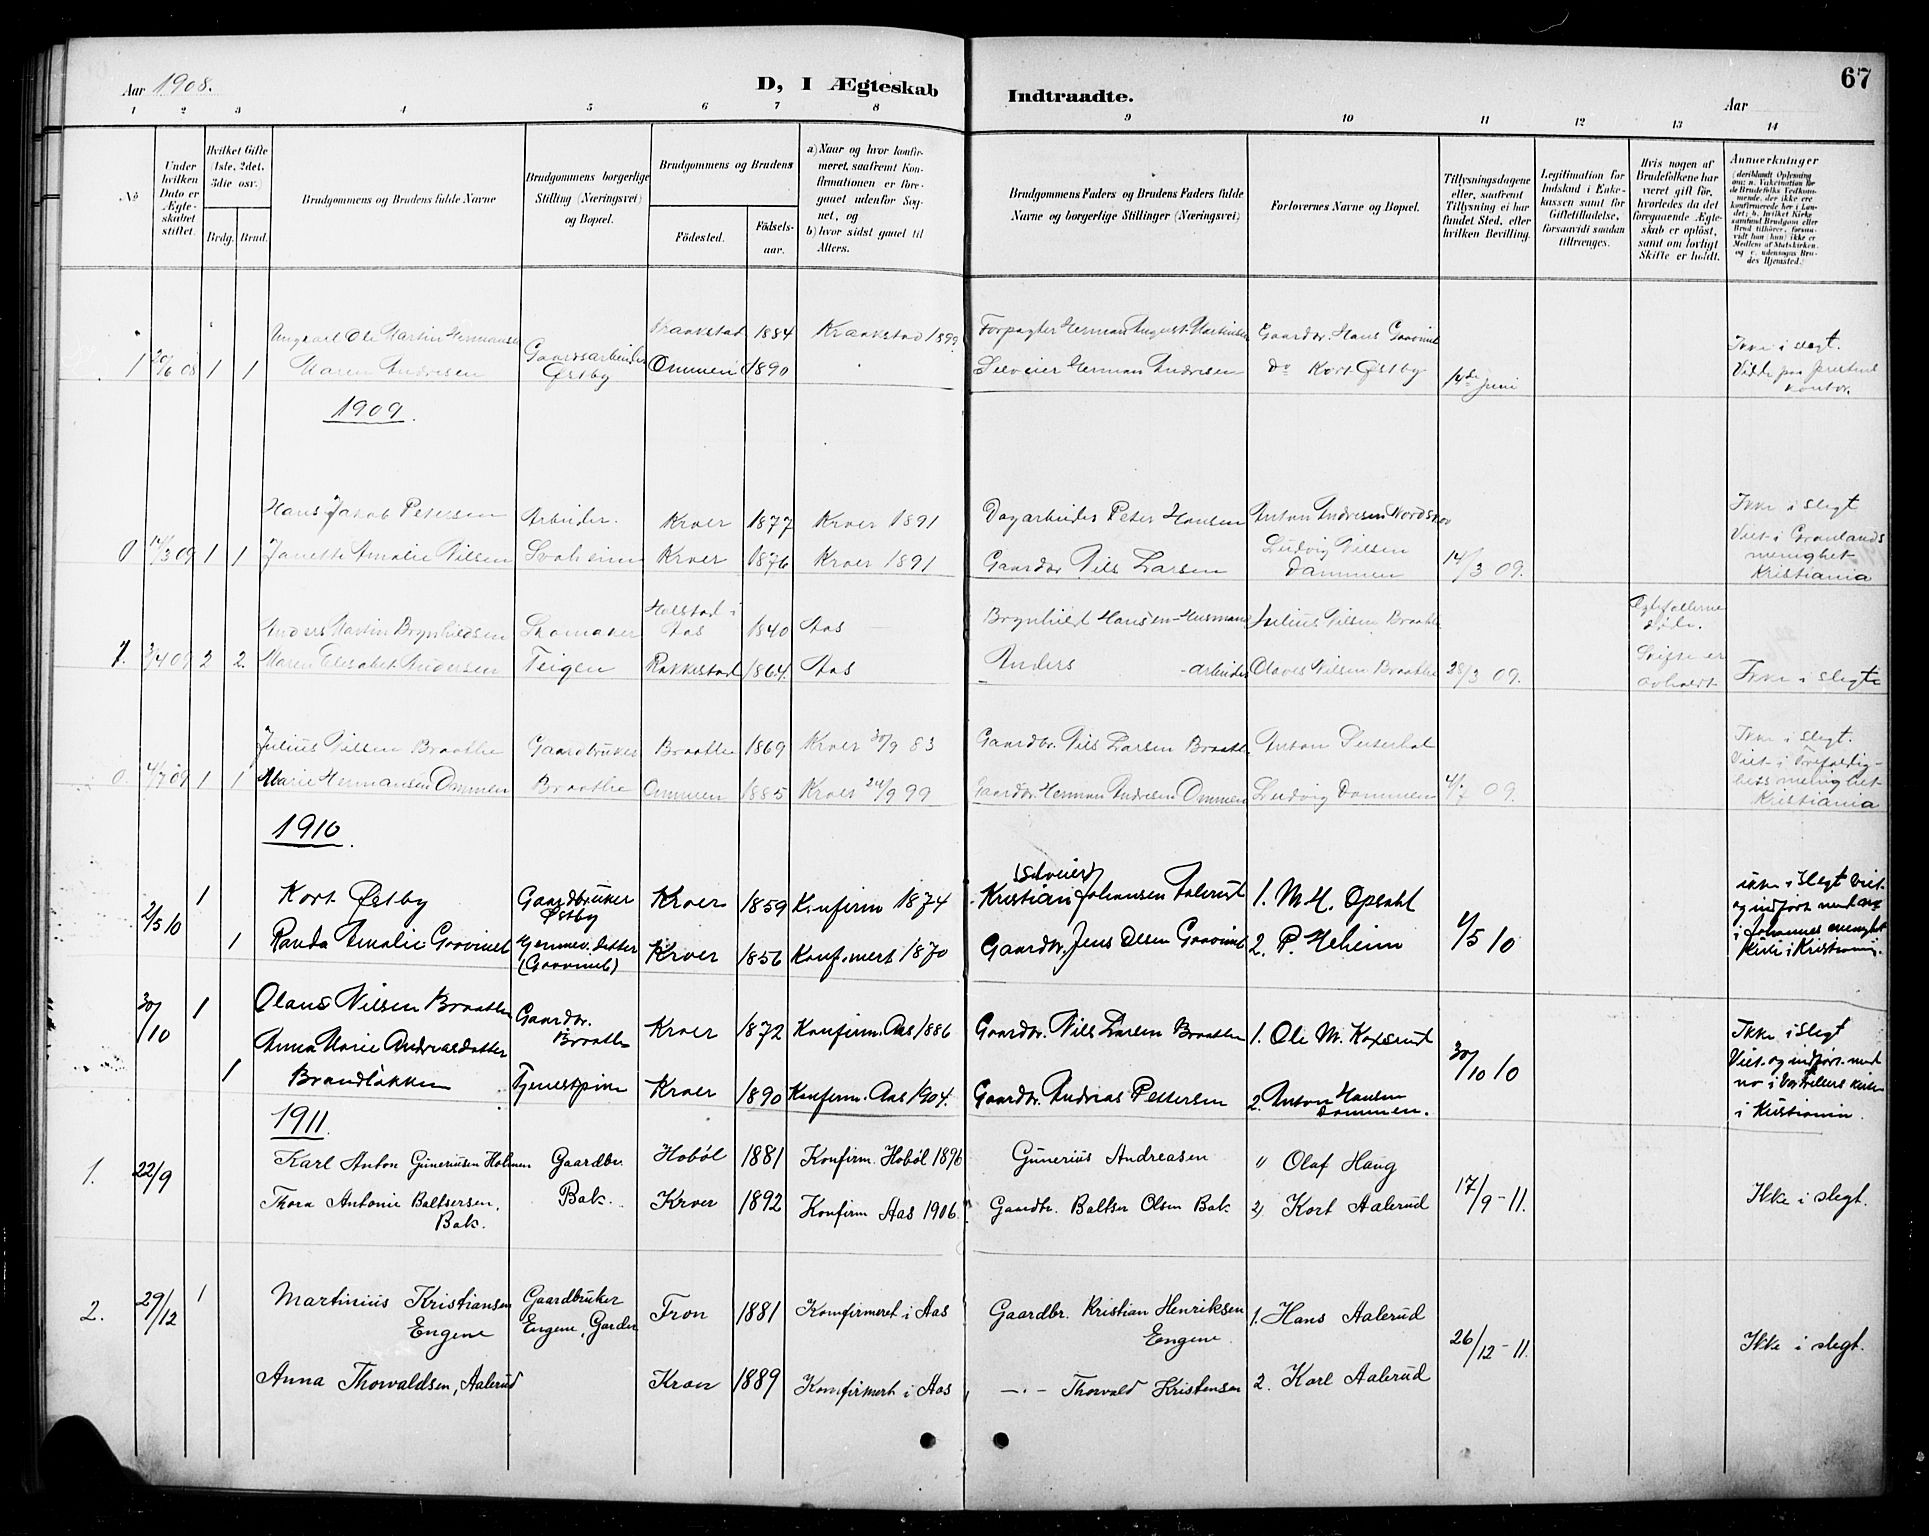 Aar 1908.
D, I Ægteskab
Indtraadte.
Aar
67
1 2 3 4 5 6 7 8 9 10 11 12 13 14
No
Under hvilken Dato er Ægteskabet stiftet.
Hvilket Gifte (1ste, 2det, 3die osv.)
Brdg. Brud.
Brudgommens og Brudens fulde Navne
Brudgommens borgerlige Stilling (Næringsvei) og Bopæl.
Brudgommens og Brudens
Fødested.
Fødselsaar.
a) Naar og hvor konfirmeret, saafremt Konfirmationen er foregaaet udenfor Sognet, og
b) hvor sidst gaaet til Alters.
Brudgommens Faders og Brudens Faders fulde Navne og borgerlige Stillinger (Næringsvei)
Forlovernes Navne og Bopæl.
Tillysningsdagene eller, saafremt Tillysning ei har fundet Sted, efter hvilken Bevilling.
Legitimation for Indskud i Enkekassen samt for Giftetilladelse, forsaavidt saadan tiltrænges.
Hvis nogen af Brudefolkene har været gift før, hvorledes da det foregaaende Ægteskab er opløst, samt om lovligt Skifte er holdt.
Anmerkninger (deriblandt Oplysning om: a. Vakcination for de Brudefolks Vedkommende, der ikke ere konfirmerede her i Landet; b. hvilket Kirkesamfund Brudgom eller Brud tilhører, forsaavidt han (hun) ikke er Medlem af Statskirken, og c. udensogns Brudes Hjemsted.)
Ungkarl Ole Martin Hermansen Kraakstad 1884 Kraakstad 1899 Forpagter Herman August Martinsen Gaardbr. Hans Graavimb Ikke i slegt.
1 20/6 08 1 1 Maren Andresen Gaardsarbeider Østby Ommen 1890 Selveier Herman Andresen Do Kort Østby 14de Juni Viede paa prestens kontor.
1909.
Hans Jakob Petersen Arbeider. Kroer 1877 Kroer 1891 Dagarbeider Peter Hansen Anton Andresen Nordskov Ikke i slegt
0 14/3 09 1 1 Janette Amalie Nilsen Solheim Kroer 1876 Kroer 1891 Gaardbr Nils Larsen Ludvig Nilsen Dammen 14/3 09. Viet i Grønlands menighet Kristiania
Anders Martin Brynhildsen Skomaker Holstad i Aas 1840 Aas Brynhild Hansen - Husmand Julius Nilsen Braathe Egtefællerne døde.
1. 3/4 09 2 2. Maren Elisabet Andersen Teigen Rakkestad 1864. Aas Anders - arbeider Olaves Nilsen Braathe 28/3 09. Skifte er avholdt Ikke i slegt
Julius Nilsen Braathe Gaardbruker Braathe 1869 Kroer 30/9 83 Gaardbr. Nils Larsen Braathe Anton Ikke i slegt.
0. 4/7 09 1 1 Marie Hermansen Ommen Braathe Ommen 1885 Kroer 24/9 99 Gaardbr. Herman Andresen Ommen Ludvig Dammen 4/7 09. Viet i Trefoldighets menighet Kristiania
1910.
2/5 10 1 Kort Østby Gaardbruker Østby Kroer 1859 Konfirm 1874 (Selveier) Kristian Johansen Aalerud 1. M. H. Opsahl 1/5 10 ikke i slegt Viet og indført med i Johannes menighet Kirke i Kristiania.
1 Randa Amalie Graavimb Hjemmev. datter (Graavimb) Kroer 1856 Konfirmert 1870 Gaardbr. Jens Olsen Graavimb 2. P. Heheim
30/10 1 Olaus Nilsen Braathen Gaardbr. Braathe Kroer 1872 Konfirm. Aas 1886 Gaardbr. Nils Larsen Braathen 1. Ole M. Kaxsrud 30/10 10 Ikke i slegt Viet og indført med no i Vor Frelsers kirke i Kristiania.
1 Anna Marie Andreasdatter Brandløkken Tjenestpike Kroer 1890 Konfirm. Aas 1904. Gaardbr. Andreas Pettersen 2. Anton Hansen Dammen.
1911.
1. 22/9 Karl Anton Guneriusen Holmen Gaardbr. Bak. Hobøl 1881 Konfirm. Hobøl 1896 Gunerius Andreasen 1) Olaf Haug 17/9 - 11. Ikke i slegt.
Thora Antonie Baltsersen, Bak. Kroer 1892 Konfirm Aas 1906. Gaardbr. Baltser Olsen Bak 2) Kort Aalerud
2. 29/12 1 Martinius Kristiansen Engene Gaardbruker Engene, Garder Fron 1881 Komfirmeret i Aas Gaardbr. Kristian Henriksen Engene. 1. Hans Aalerud 26/12 - 11. Ikke i slegt.
Anna Thorvaldsen, Aalerud Kroer 1889 Komfirmert i Aas —„— Thorvald Kristensen 2. Karl Aalerud